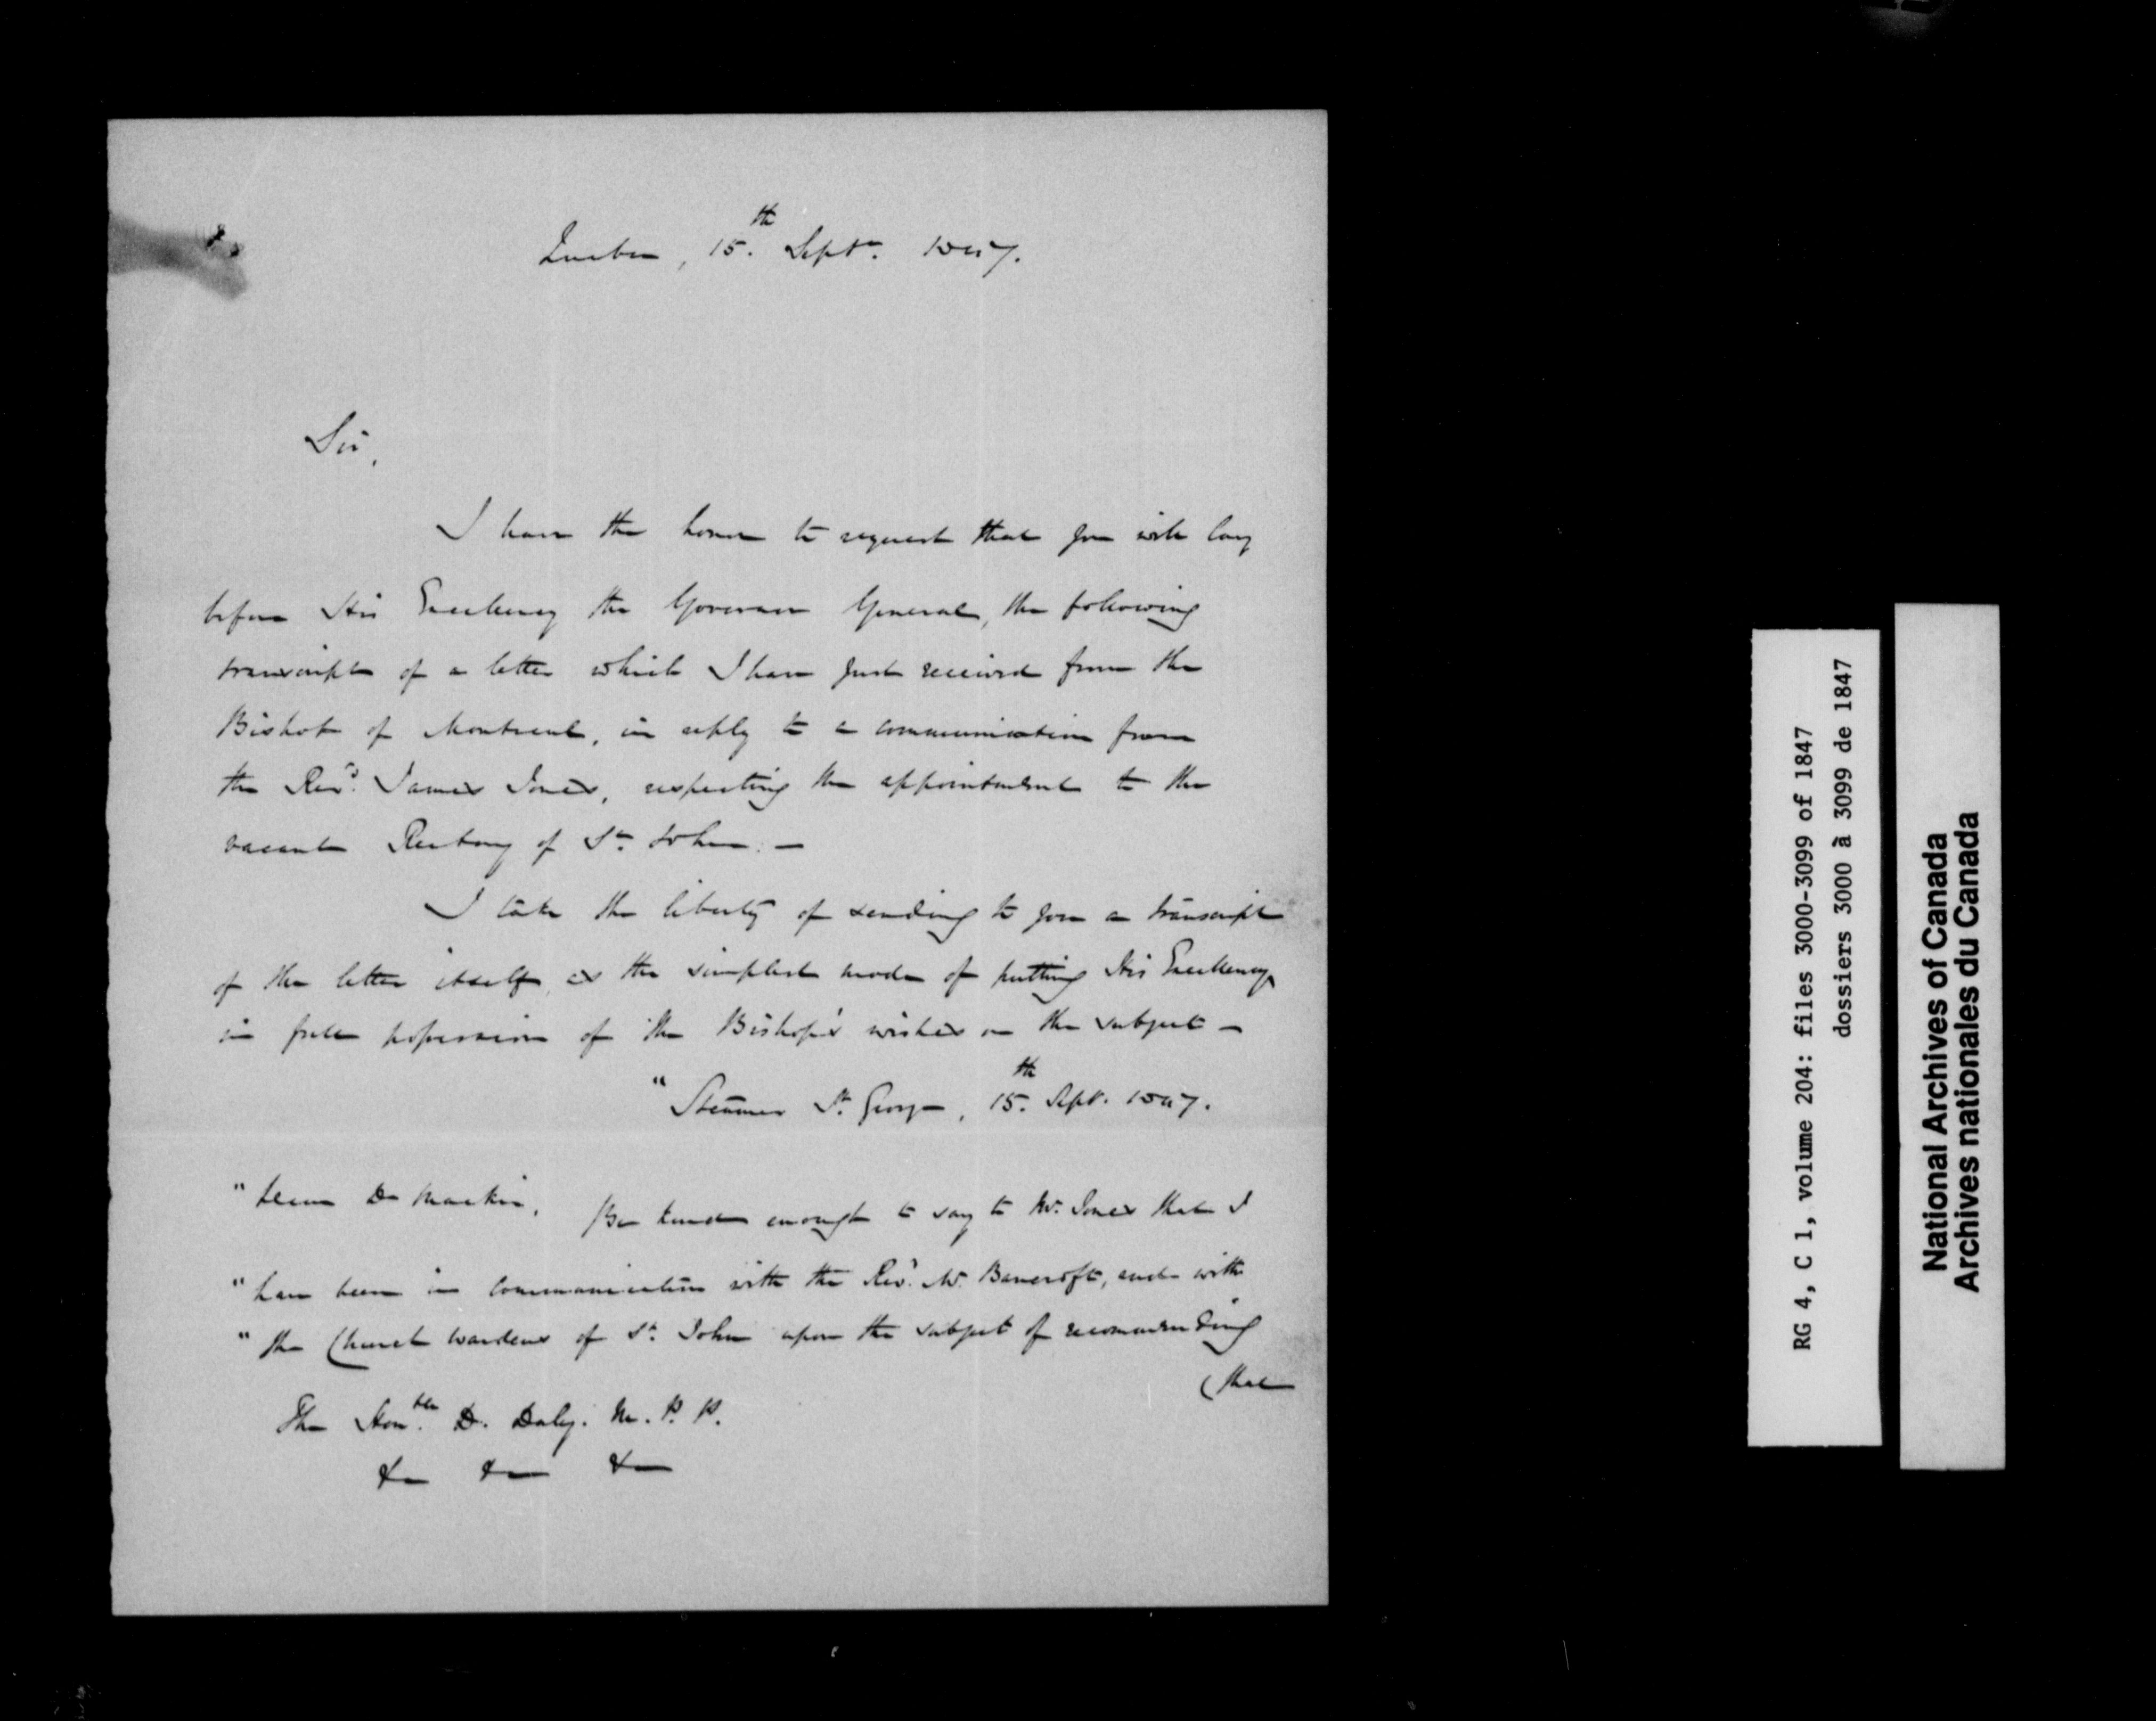 Quebec, 15.th Septr. 1847.
Sir,
I have the honor to request that you will lay
before His Excellency the Governor General, the following
transcript of a letter which I have just received from the
Bishop of Montreal, in reply to a communication from
the Revd. James Jones, respecting the appointment to the
vacant Rectory of St. John. —
I take the liberty of sending to you a transcript
of the letter itself, as the simplest mode of putting His Excellency
in full possession of the Bishop's wishes on the subject —
"Steamer St. George, 15.th Sept. 1847.
"Dear Dr Mackie, Be kind enough to say to Mr. Jones that I
"have been in communication with the Revd. Mr. Bancroft, and with
"the Church Wardens of St. John upon the subject of recommending
(that
The Honble. D. Daly. M. P. P.
&c &c &c
RG 4, C 1, volume 204: files 3000-3099 of 1847
dossiers 3000 à 3099 de 1847
National Archives of Canada
Archives nationales du Canada